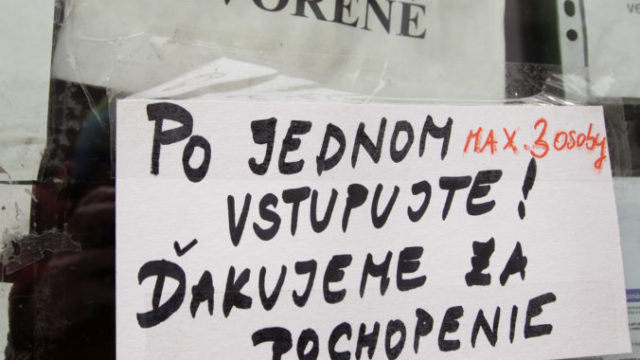 VORENÉ
PO JEDNOM MAX. 3 osoby
VSTUPUJTE!
ĎAKUJEME ZA
POCHOPENIE